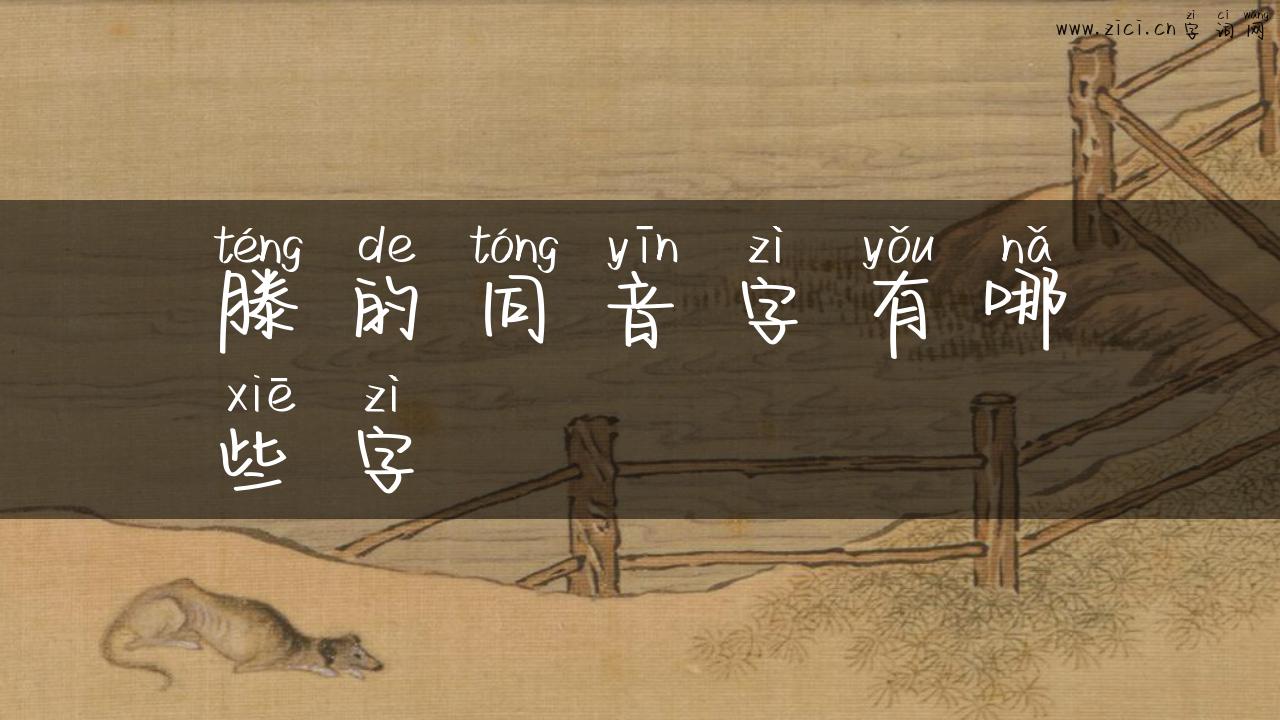 zì cí wǎng
www.zici.cn 字词网
téng de tóng yīn zì yǒu nǎ
滕的同音字有哪
xiē zì
些字